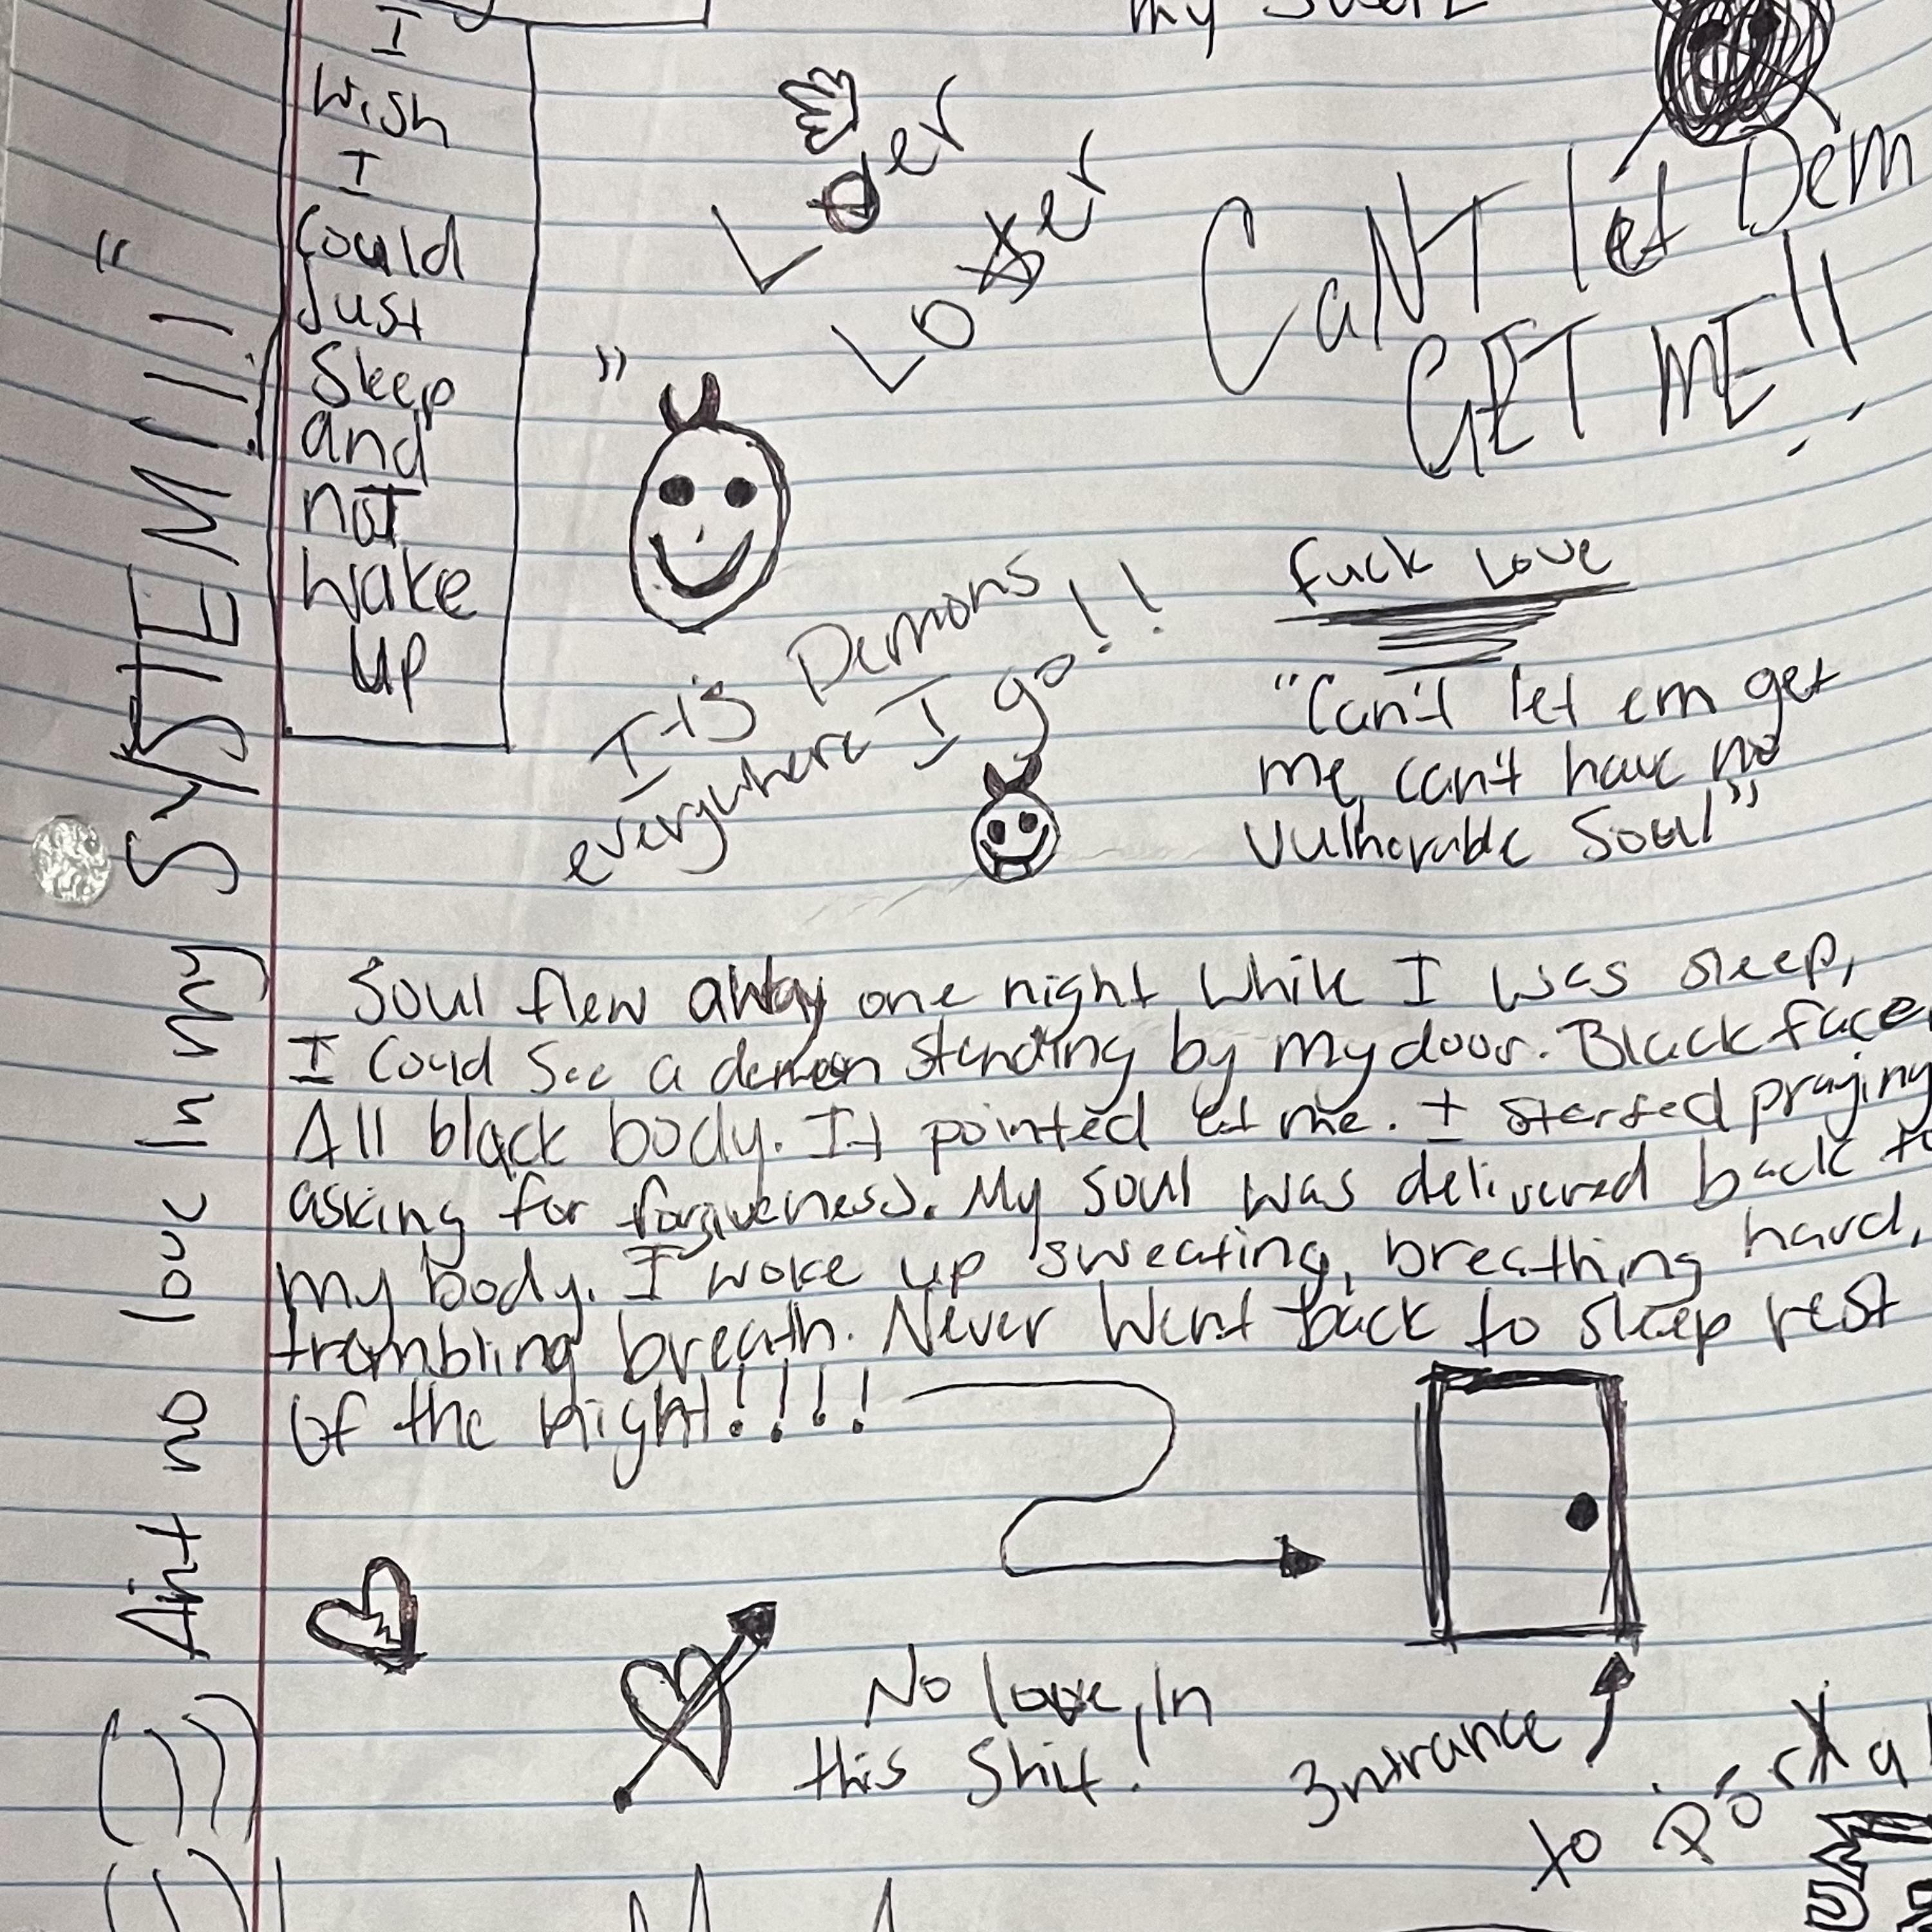 my
I
Wish
I
Could
Just
Sleep
and
not
wake
up
Loser
"Can't let Dem
GET ME!!
"
It is Demons
everywhere I go!!
fuck Love
"Can't let em get
me, can't have no
vulnerable Soul"
Soul flew away one night while I was sleep,
I Could See a demon standing by my door. Black face,
All black body. It pointed at me. I started praying
asking for forgiveness. My soul was delivered back to
my body. I woke up sweating, breathing hard,
trembling breath. Never Went back to sleep rest
of the Night!!!!
No love, In
this Shit!
3ntrance
to
Aint no love In my SYSTEM!!!!"